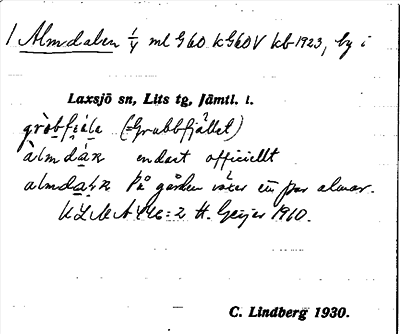 1 Almdalen 1/4 ml G60 kG60V kb 1923, by i
Laxsjö sn, Lits tg, Jämtl. l.
gròbfjɛ̀lɛ (=Grubbfjället)
àlmdáɴ endast officiellt
almdaɴ På gården växer ett par almar.
H. Geijer 1960.
C. Lindberg 1930.